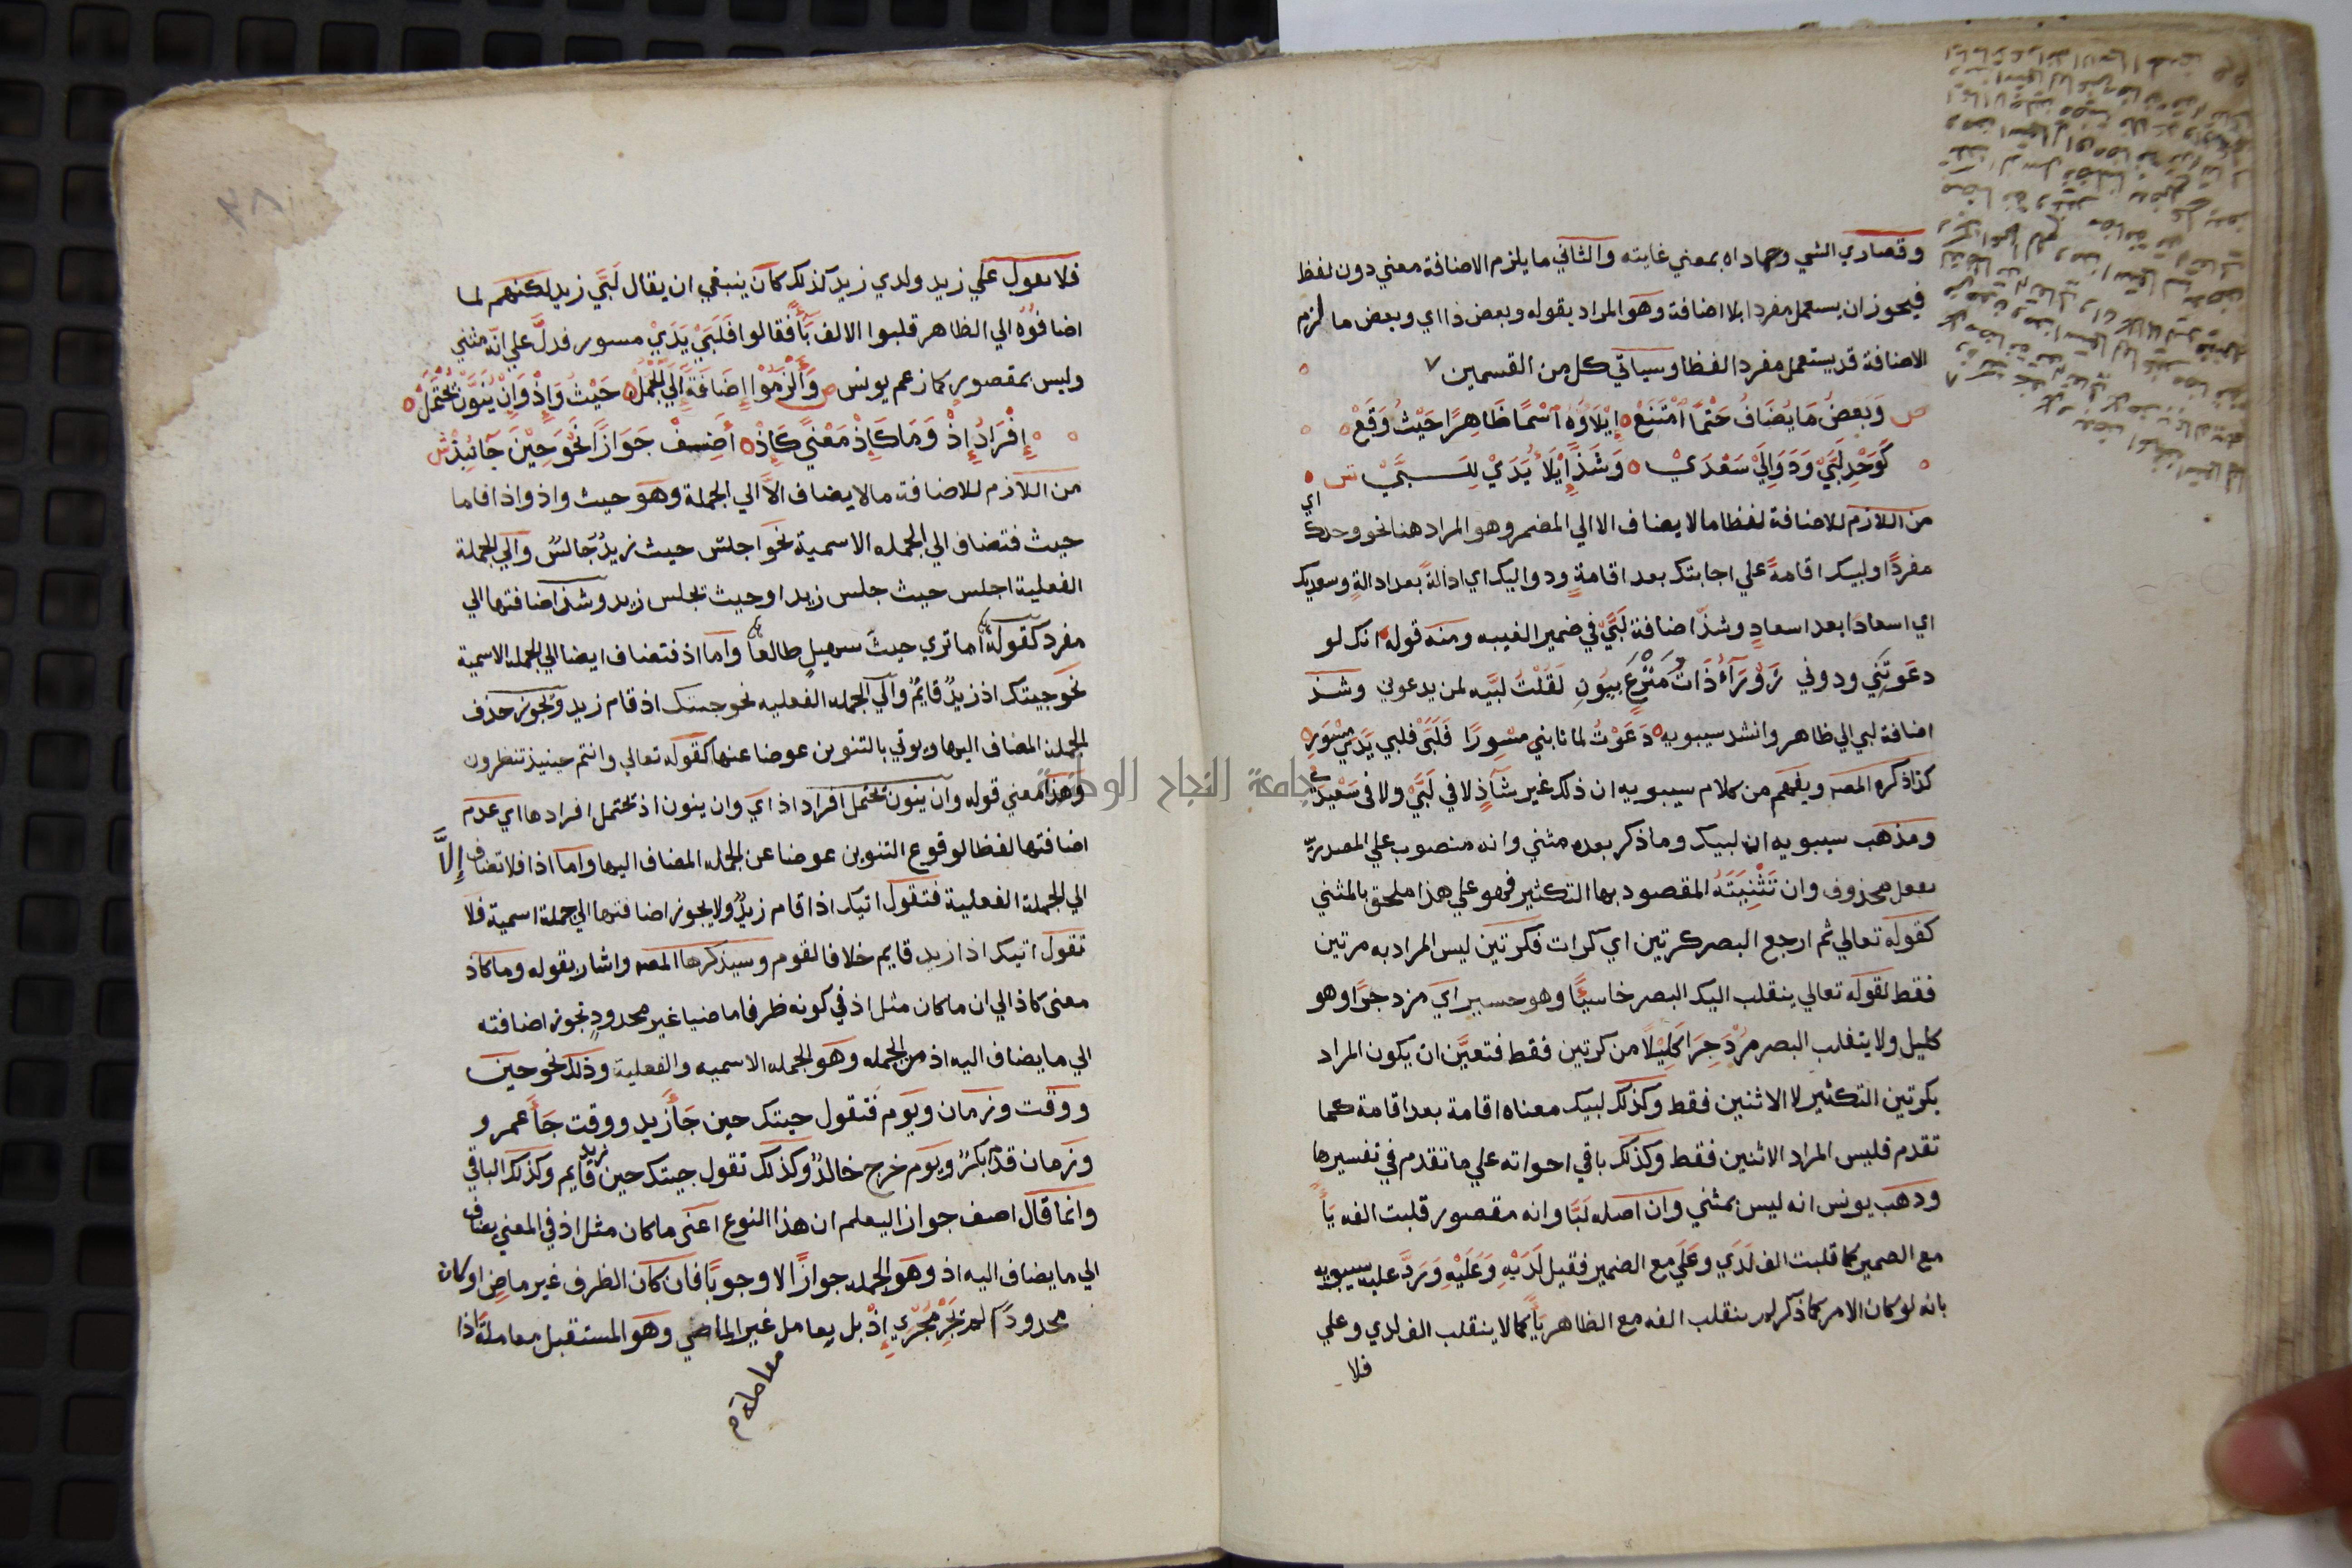 وقصاري الشي وحماداه بمعني غايته والثاني ما يلزم الاضافة معني دون لفظ
فيجوز ان يستعمل مفردا بلا اضافة وهو المراد بقوله وبعض ذا اي وبعض ما لزم
الاضافة قد يستعمل مفردا لفظا وسياتي كل من القسمين
ص وَبَعضُ مَا يُضَافُ حَتْمًا امْتَنَعْ إيْلَاؤُهُ اسْمًا ظَاهِرًا حَيْثُ وَقَعْ
كَوَحْدِ لَبَّيْ وَدَوَالَيْ سَعْدَيْ وَشَذَّ إيْلَاُ يَدَيْ لِلَبَّيْ ش
من اللازم للاضافة لفظا ما لا يضاف الا الي المضمر وهو المراد هنا نحو وحدك اي
مفردًا ولبيك اقامةً علي اجابتك بعد اقامةٍ ودواليك اي ادالةً بعد ادالةٍ وسعديك
اي اسعادًا بعد اسعادٍ وشذّ اضافة لَبَّيْ في ضمير الغيبه ومنه قوله انك لو
دعَوتَنِي ودوني زَوْرَآءُ ذَاتُ مَنْزَعٍ بيُونِ لَقُلْتُ لبَّيه لمن يدعوني وشذ
اضافة لبي الي ظاهر وانشد سيبويه دَعَوْتُ لما نابني مِسْورًا فَلَبَّيْ فلبي يَدَيْ مِسْوَرِ
كذا ذكره المصه ويفهم من كلام سيبويه ان ذلك غير شآذٍ لا في لَبَّيْ ولا في سَعْدَيْ
ومذهب سيبويه ان لبيك وما ذكر بعده مثني وانه منصوب علي المصدريّة
بفعل محذوف وان تَثْنِيَتَهُ المقصود بها التكثير فهو علي هذا ملحق بالمثني
كقوله تعالي ثم ارجع البصر كرتين اي كرات فكرتين ليس المراد به مرتين
فقط لقوله تعالي ينقلب اليك البصر خاسيًا وهو حسير اي مزدجرًا وهو
كليل ولا ينقلب البصر مُزْدَجِرًا كَلِيْلًا من كرتين فقط فتعيَّن ان يكون المراد
بكرتين التكثير لا الاثنين فقط وكذلك لبيك معناه اقامة بعد اقامة كما
تقدم فليس المراد الاثنين فقط وكذلك باقي اخواته علي ما تقدم في تفسيرها
وذهب يونس انه ليس بمثني وان اصله لَبَّا وانه مقصور قلبت الفه يَآً
مع الضمير كما قلبت الف لَدَي وعَلَي مع الضمير فقيل لَدَيْهِ وَعَلَيْهِ وَرَدَّ عليه سيبويه
بانه لو كان الامر كما ذكر لم ينقلب الفه مع الظاهر يآً كما لا ينقلب الف لدي وعلي
فلا
فلا يقول علي زيد ولدي زيد كذلك كان ينبغي ان يقال لَبَّي زيد لكنهم لما
اضافُوْه الي الظاهر قلبوا الالف يآً فقالوا فَلَبَّيْ يَدَيْ مسور فدلَّ علي انّه مثني
وليس بمقصور كما زعم يونس ص وَأَلزَمُوْا إضَافَةً إلَي الجُمَلْ حَيْثُ وَإذْ وَإنْ يُنَوَّنْ يُحْتَمَلْ
إفْرَادُ إذْ وَمَا كَإذْ مَعْنيً كَإذْ أَضِفْ جَوَازًا نَحْوَ حِيْنَ جَآ نُبِذْ ش
من اللازم للاضافة ما لا يضاف الّا الي الجملة وهو حيث واذ واذا فاما
حيث فتضاف الي الجمله الاسمية نحو اجلس حيث زيدٌ جَالسٌ والي الجملة
الفعلية اجلس حيث جلس زيد او حيث تجلس زيد وشذ اضافتها الي
مفرد كقوله اما تري حيثُ سهيلٍ طالعا واما اذ فتضاف ايضا الي الجمله الاسمية
نحو جيتك اذ زيدٌ قايمٌ والي الجمله الفعليه نحو جيتك اذ قام زيد ويجوز حذف
الجملة المضاف اليها ويوتي بالتنوين عوضا عنها كقوله تعالي وانتم حينيذ تنظرون
وهذا معني قوله وان ينون يحتمل افراد اذ اي وان ينون اذ تحتمل افرادها اي عدم
اضافتها لفظا لوقوع التنوين عوضا عن الجمله المضاف اليها واما اذا فلا تضاف إلاَّ
الي الجملة الفعلية فتقول اتيك اذا قام زيدٌ ولا يجوز اضافتها الي جملة اسمية فلا
تقول اتيك اذا زيد قايم خلافا لقوم وسيذكرها المصه واشار بقوله وما كاذ
معني كاذ الي ان ما كان مثل اذ في كونه ظرفا ماضيا غير محدودٍ تجوز اضافته
الي ما يضاف اليه اذ من الجمله وهو الجمله الاسميه والفعلية وذلك نحو حين
ووقت وزمان ويوم فتقول جيتك حين جَآ زيد ووقت جَآ عمرو
وزمان قدم بكرٌ ويوم خرج خالدٌ وكذلك تقول جيتك حين زيد قايم وكذلك الباقي
وانما قال اضف جوازا ليعلم ان هذا النوع اعني ما كان مثل اذ في المعني يضاف
الي ما يضاف اليه اذ وهو الجمله جوازًا لا وجوبًا فان كان الظرف غير ماضٍ او كان
محدودًا لم تجْرِ مُجْرَي إذْ بل يعامل غير الماضي وهو المستقبل معاملة اذا
معامله م
جامعة النجاح الوطنية